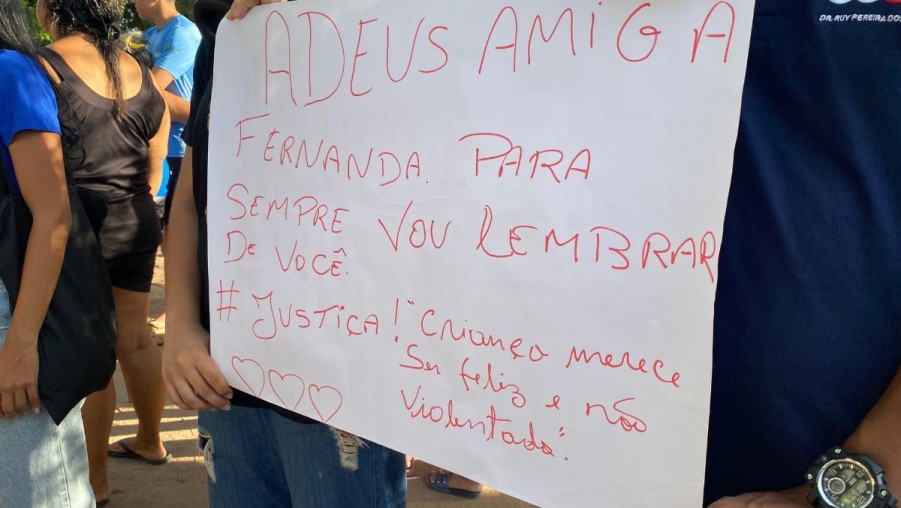 ADEUS AMIGA
FERNANDA. PARA
SEMPRE VOU LEMBRAR
DE VOCÊ.
# JUSTIÇA! "Criança merece
Ser feliz e não
Violentada".
DR. RUY PEREIRA DOS